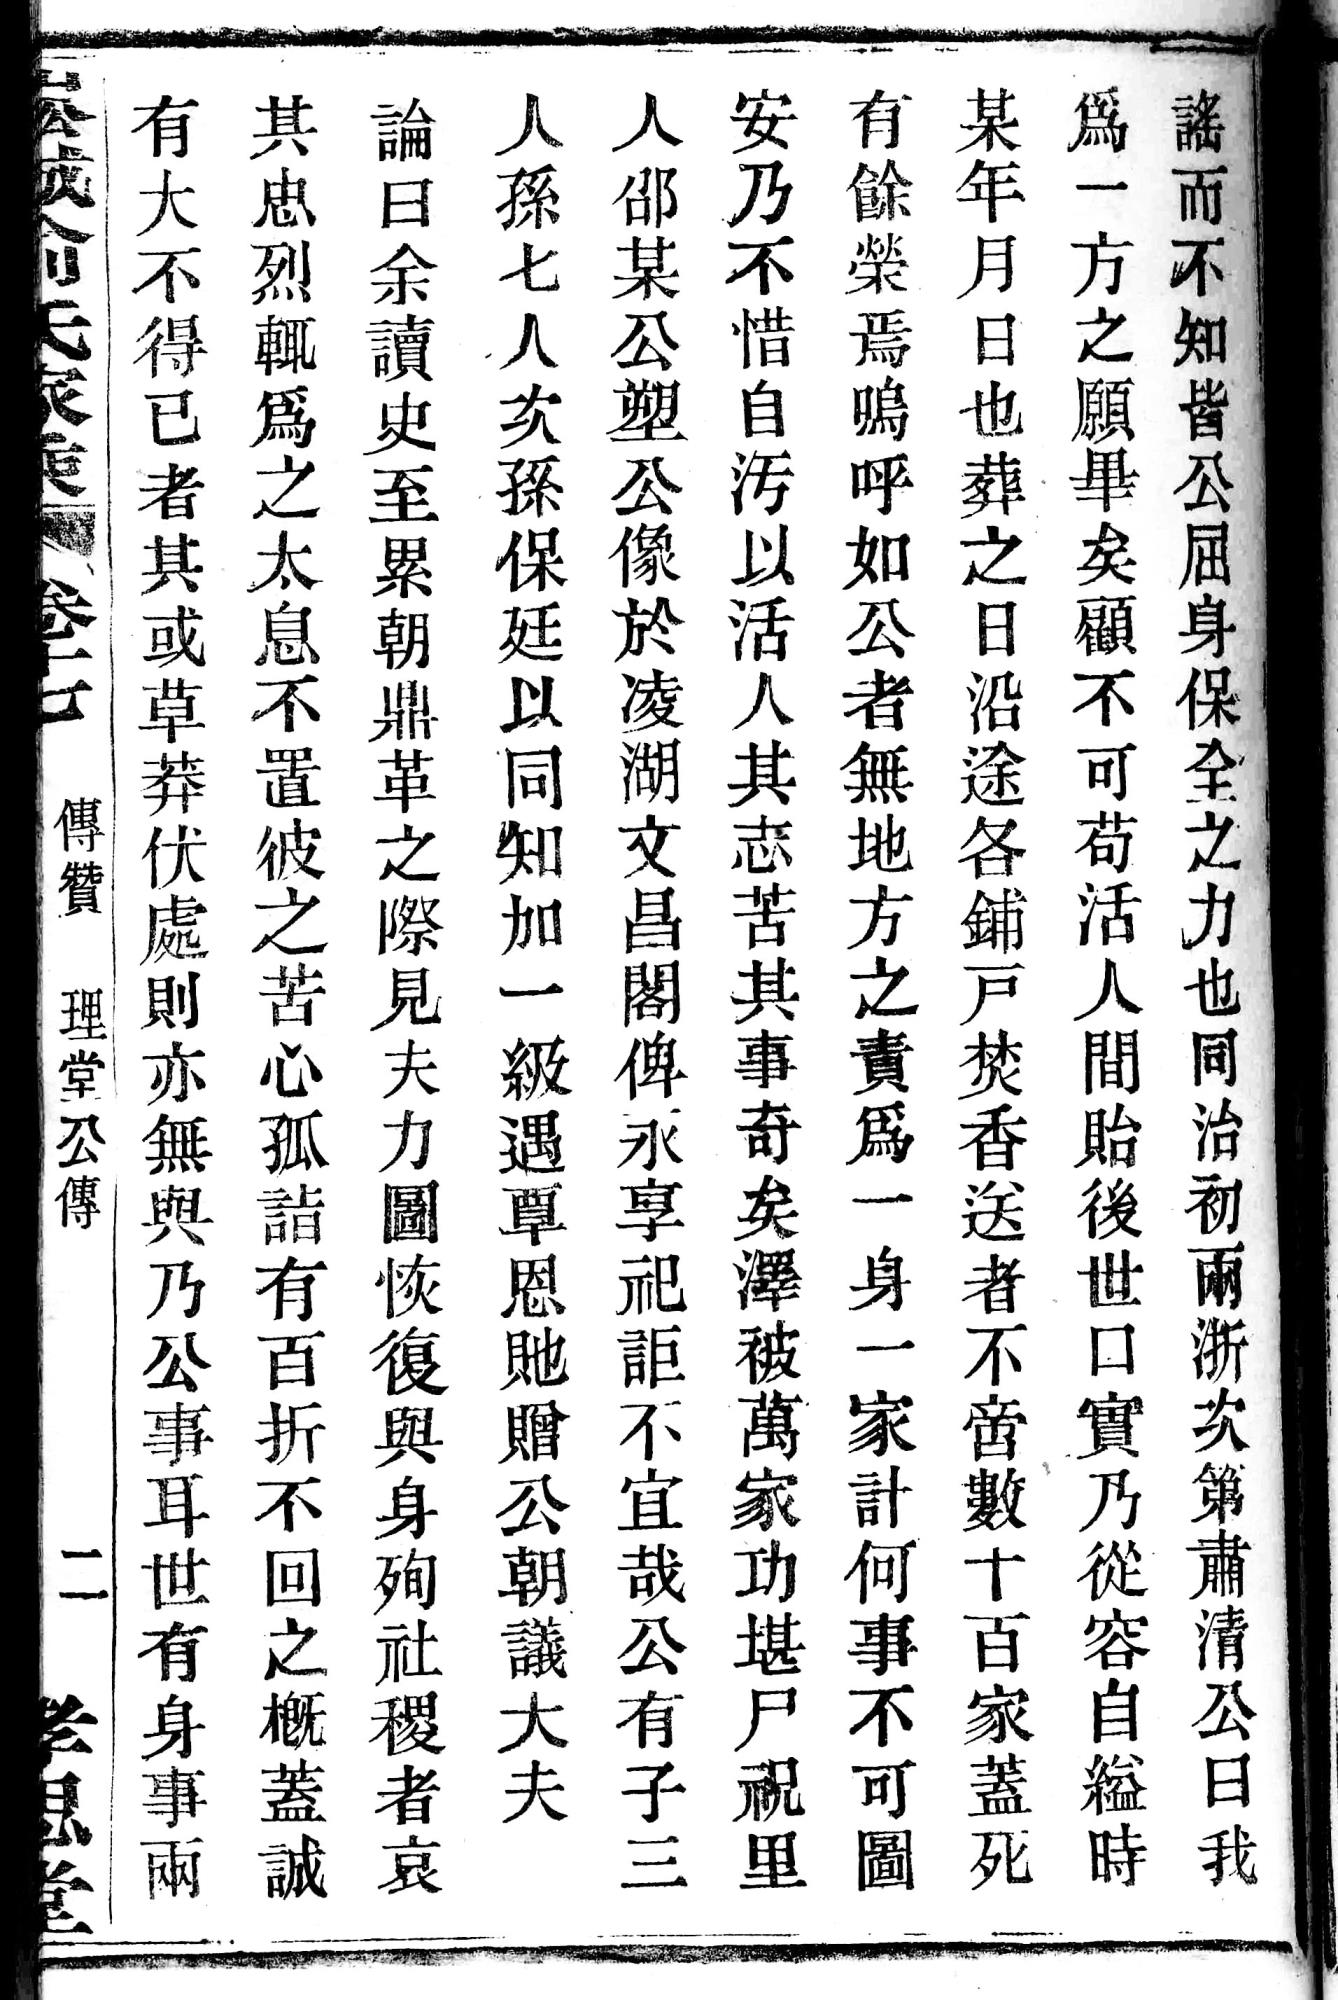 謠而不知皆公屈身保全之力也同治初兩浙次第肅清公曰我
爲一方之願畢矣顧不可苟活人間貽後世口實乃從容自縊時
某年月日也葬之日沿途各鋪戸焚香送者不啻數十百家蓋死
有餘榮焉嗚呼如公者無地方之責爲一身一家計何事不可圖
安乃不惜自汚以活人其志苦其事奇矣澤被萬家功堪尸祝里
人邵某公塑公像於凌湖文昌閣俾永享祀詎不宜哉公有子三
人孫七人次孫保廷以同知加一級遇覃恩貤贈公朝議大夫
論曰余讀史至累朝鼎革之際見夫力圖恢復與身殉社稷者哀
其忠烈輒爲之太息不置彼之苦心孤詣有百折不回之槪蓋誠
有大不得已者其或草莽伏處則亦無與乃公事耳世有身事兩
氏家乘 卷十七 傳贊 理堂公傳 二 孝思堂